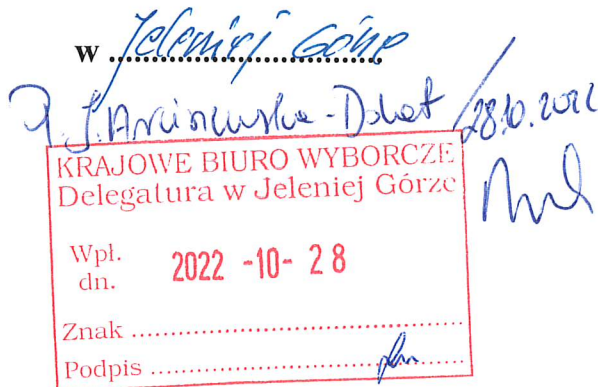 w Jeleniej Górze
28.10.2022
KRAJOWE BIURO WYBORCZE
Delegatura w Jeleniej Górze
Wpł.
dn. 2022 -10- 28
Znak
Podpis